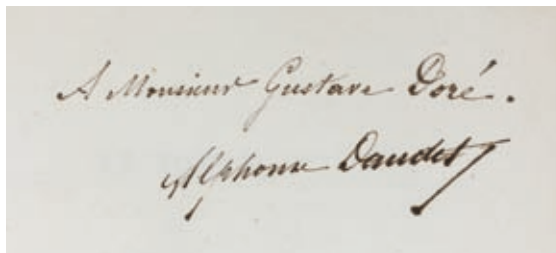 A Monsieur Gustave Doré.
Alphonse Daudet